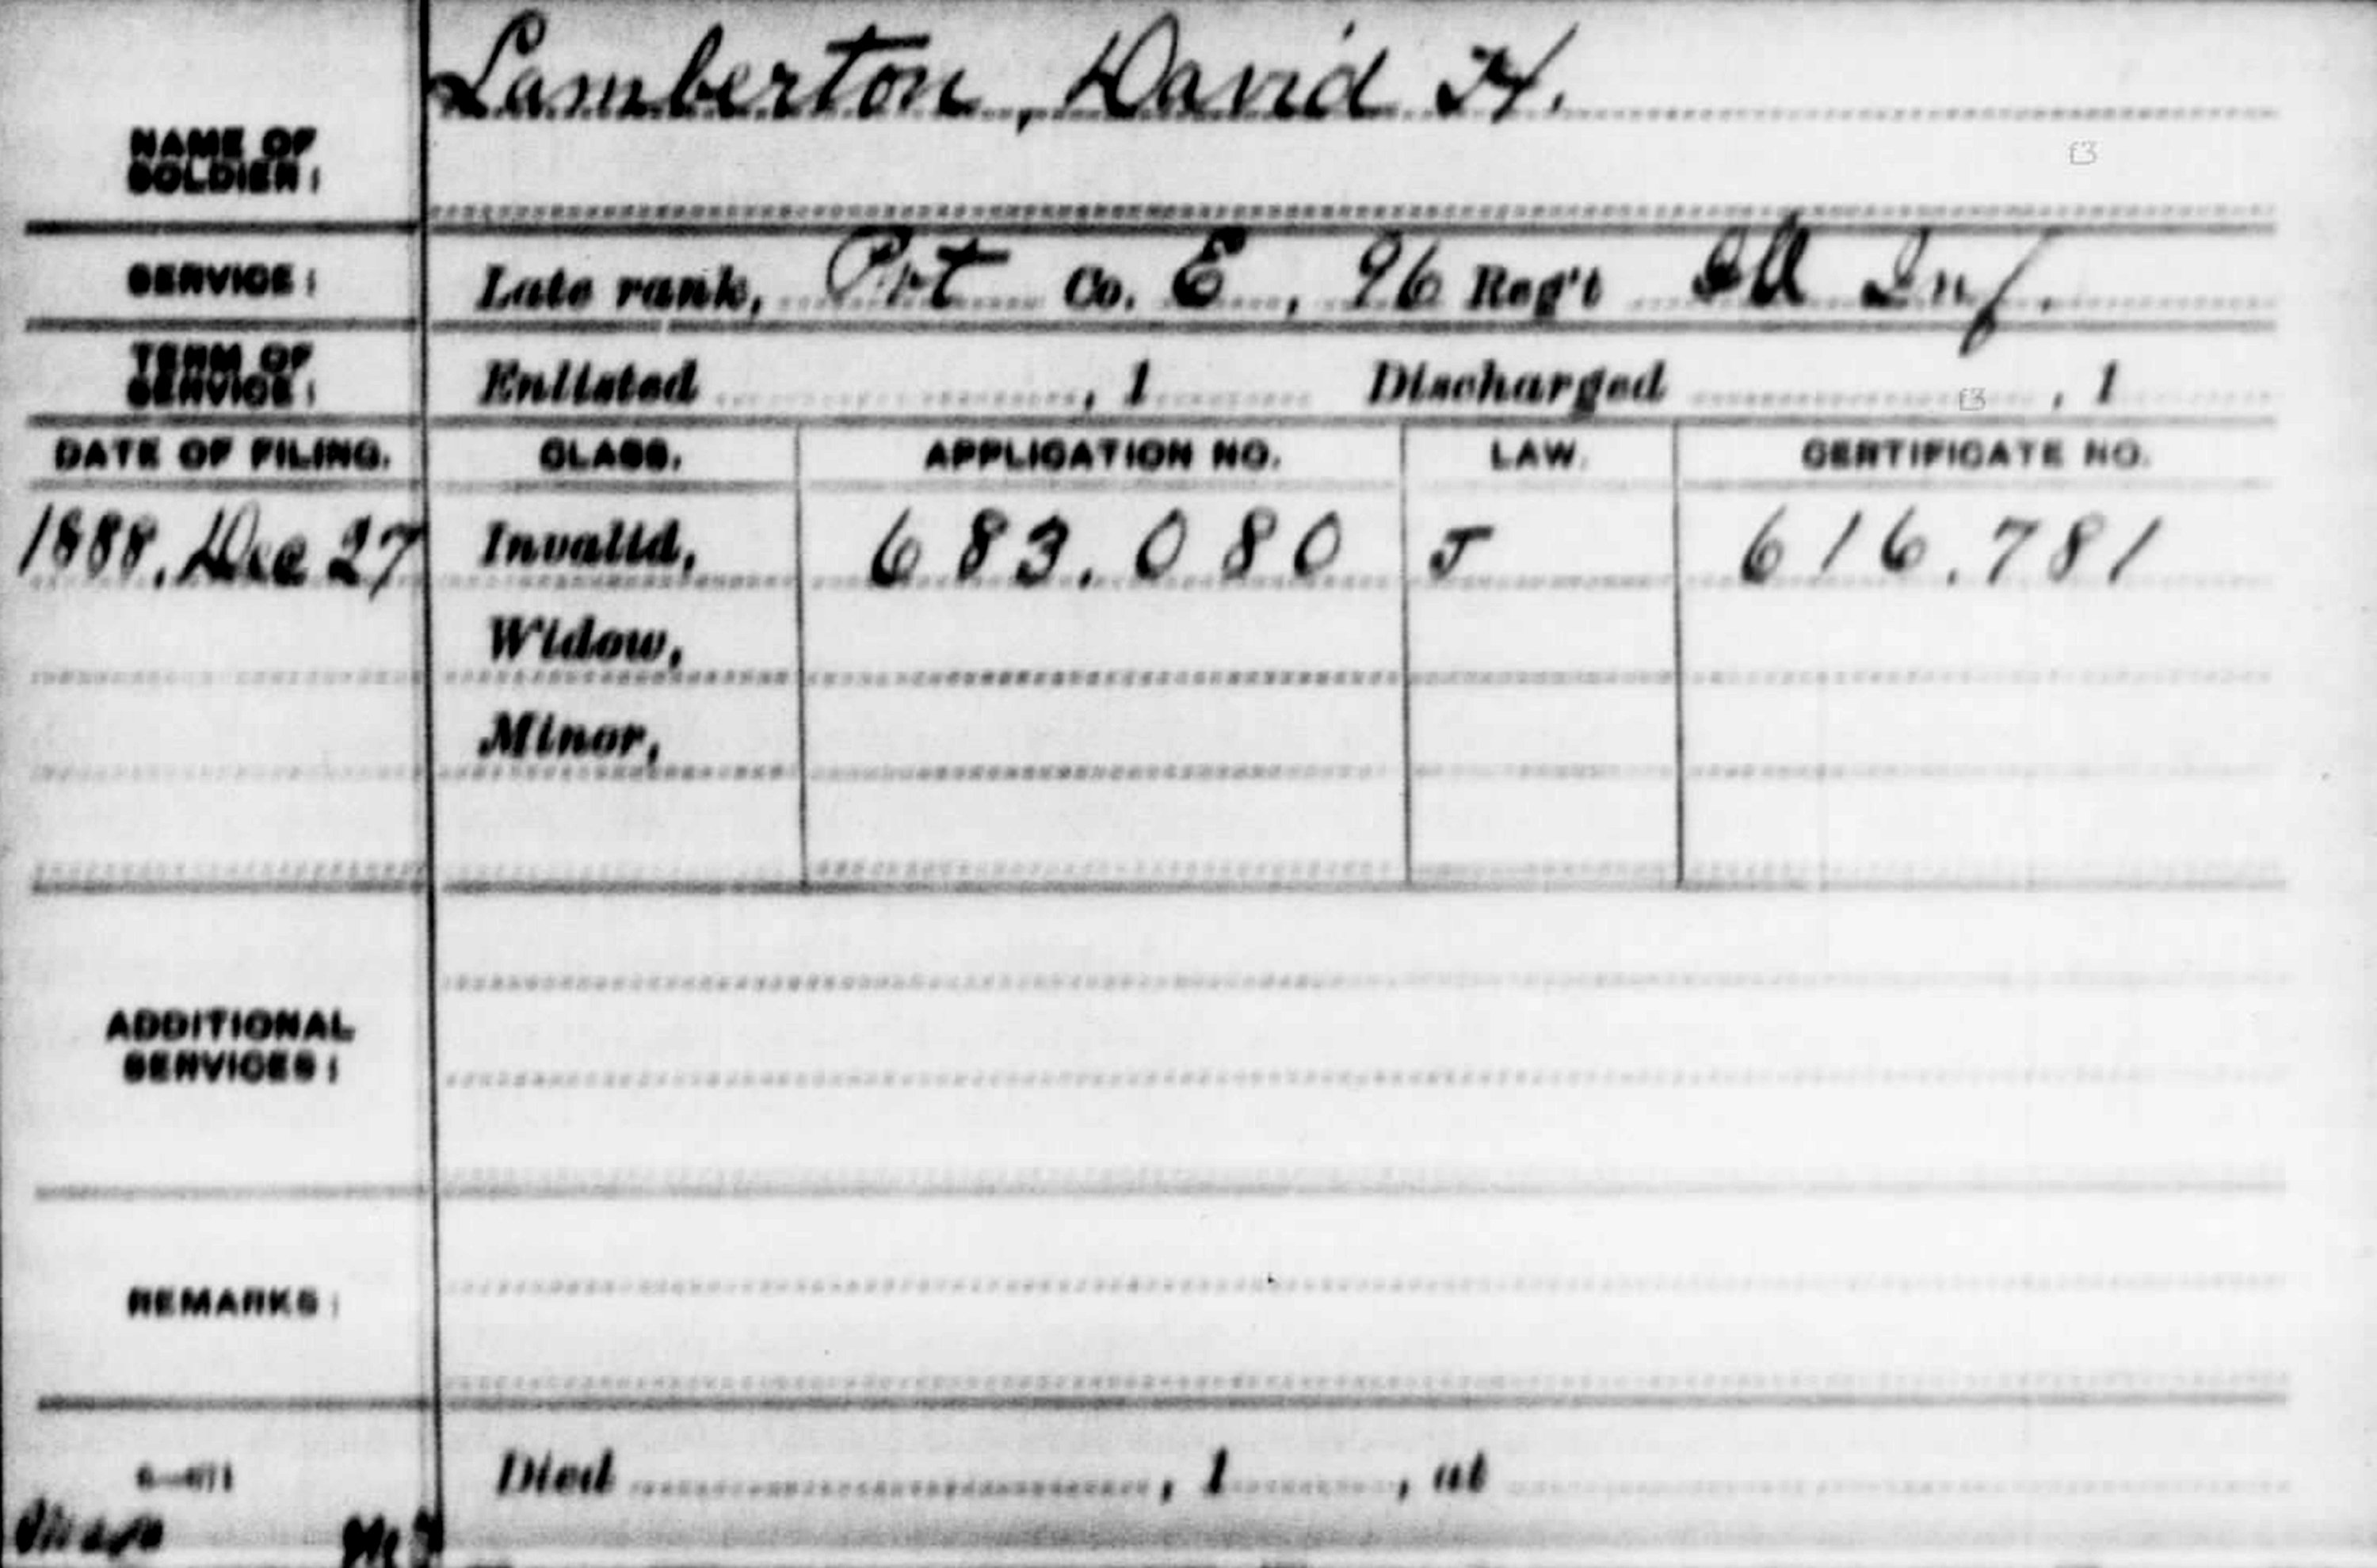 Lamberton, David H.
NAME OF
SOLDIER:
SERVICE: Late rank, Prt Co. E, 96 Reg't Ill Inf.
TERM OF
SERVICE: Enlisted , 1 Discharged , 1
DATE OF FILING. CLASS. APPLICATION NO. LAW. CERTIFICATE NO.
1888. Dec 27 Invalid, 683.080 J 616.781
Widow,
Minor,
ADDITIONAL
SERVICES:
REMARKS:
Died , 1 , at